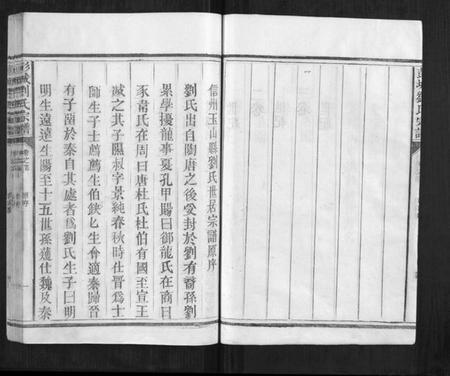 彭城劉氏宗譜
信州玉山縣劉氏世居宗譜原序
劉氏出自陶唐之後受封於劉有裔孫劉
累學擾龍事夏孔甲賜曰御龍氏在商曰
豕韋氏在周曰唐杜氏杜伯有國至宣王
滅之其子隰叔字景純春秋時仕晉為士
師生子士蒍蒍生伯缺缺生會適秦歸晉
有子留於秦自其處者為劉氏生子曰明
明生遠遠生陽至十五世孫蓮仕魏及秦
彭城劉氏宗譜